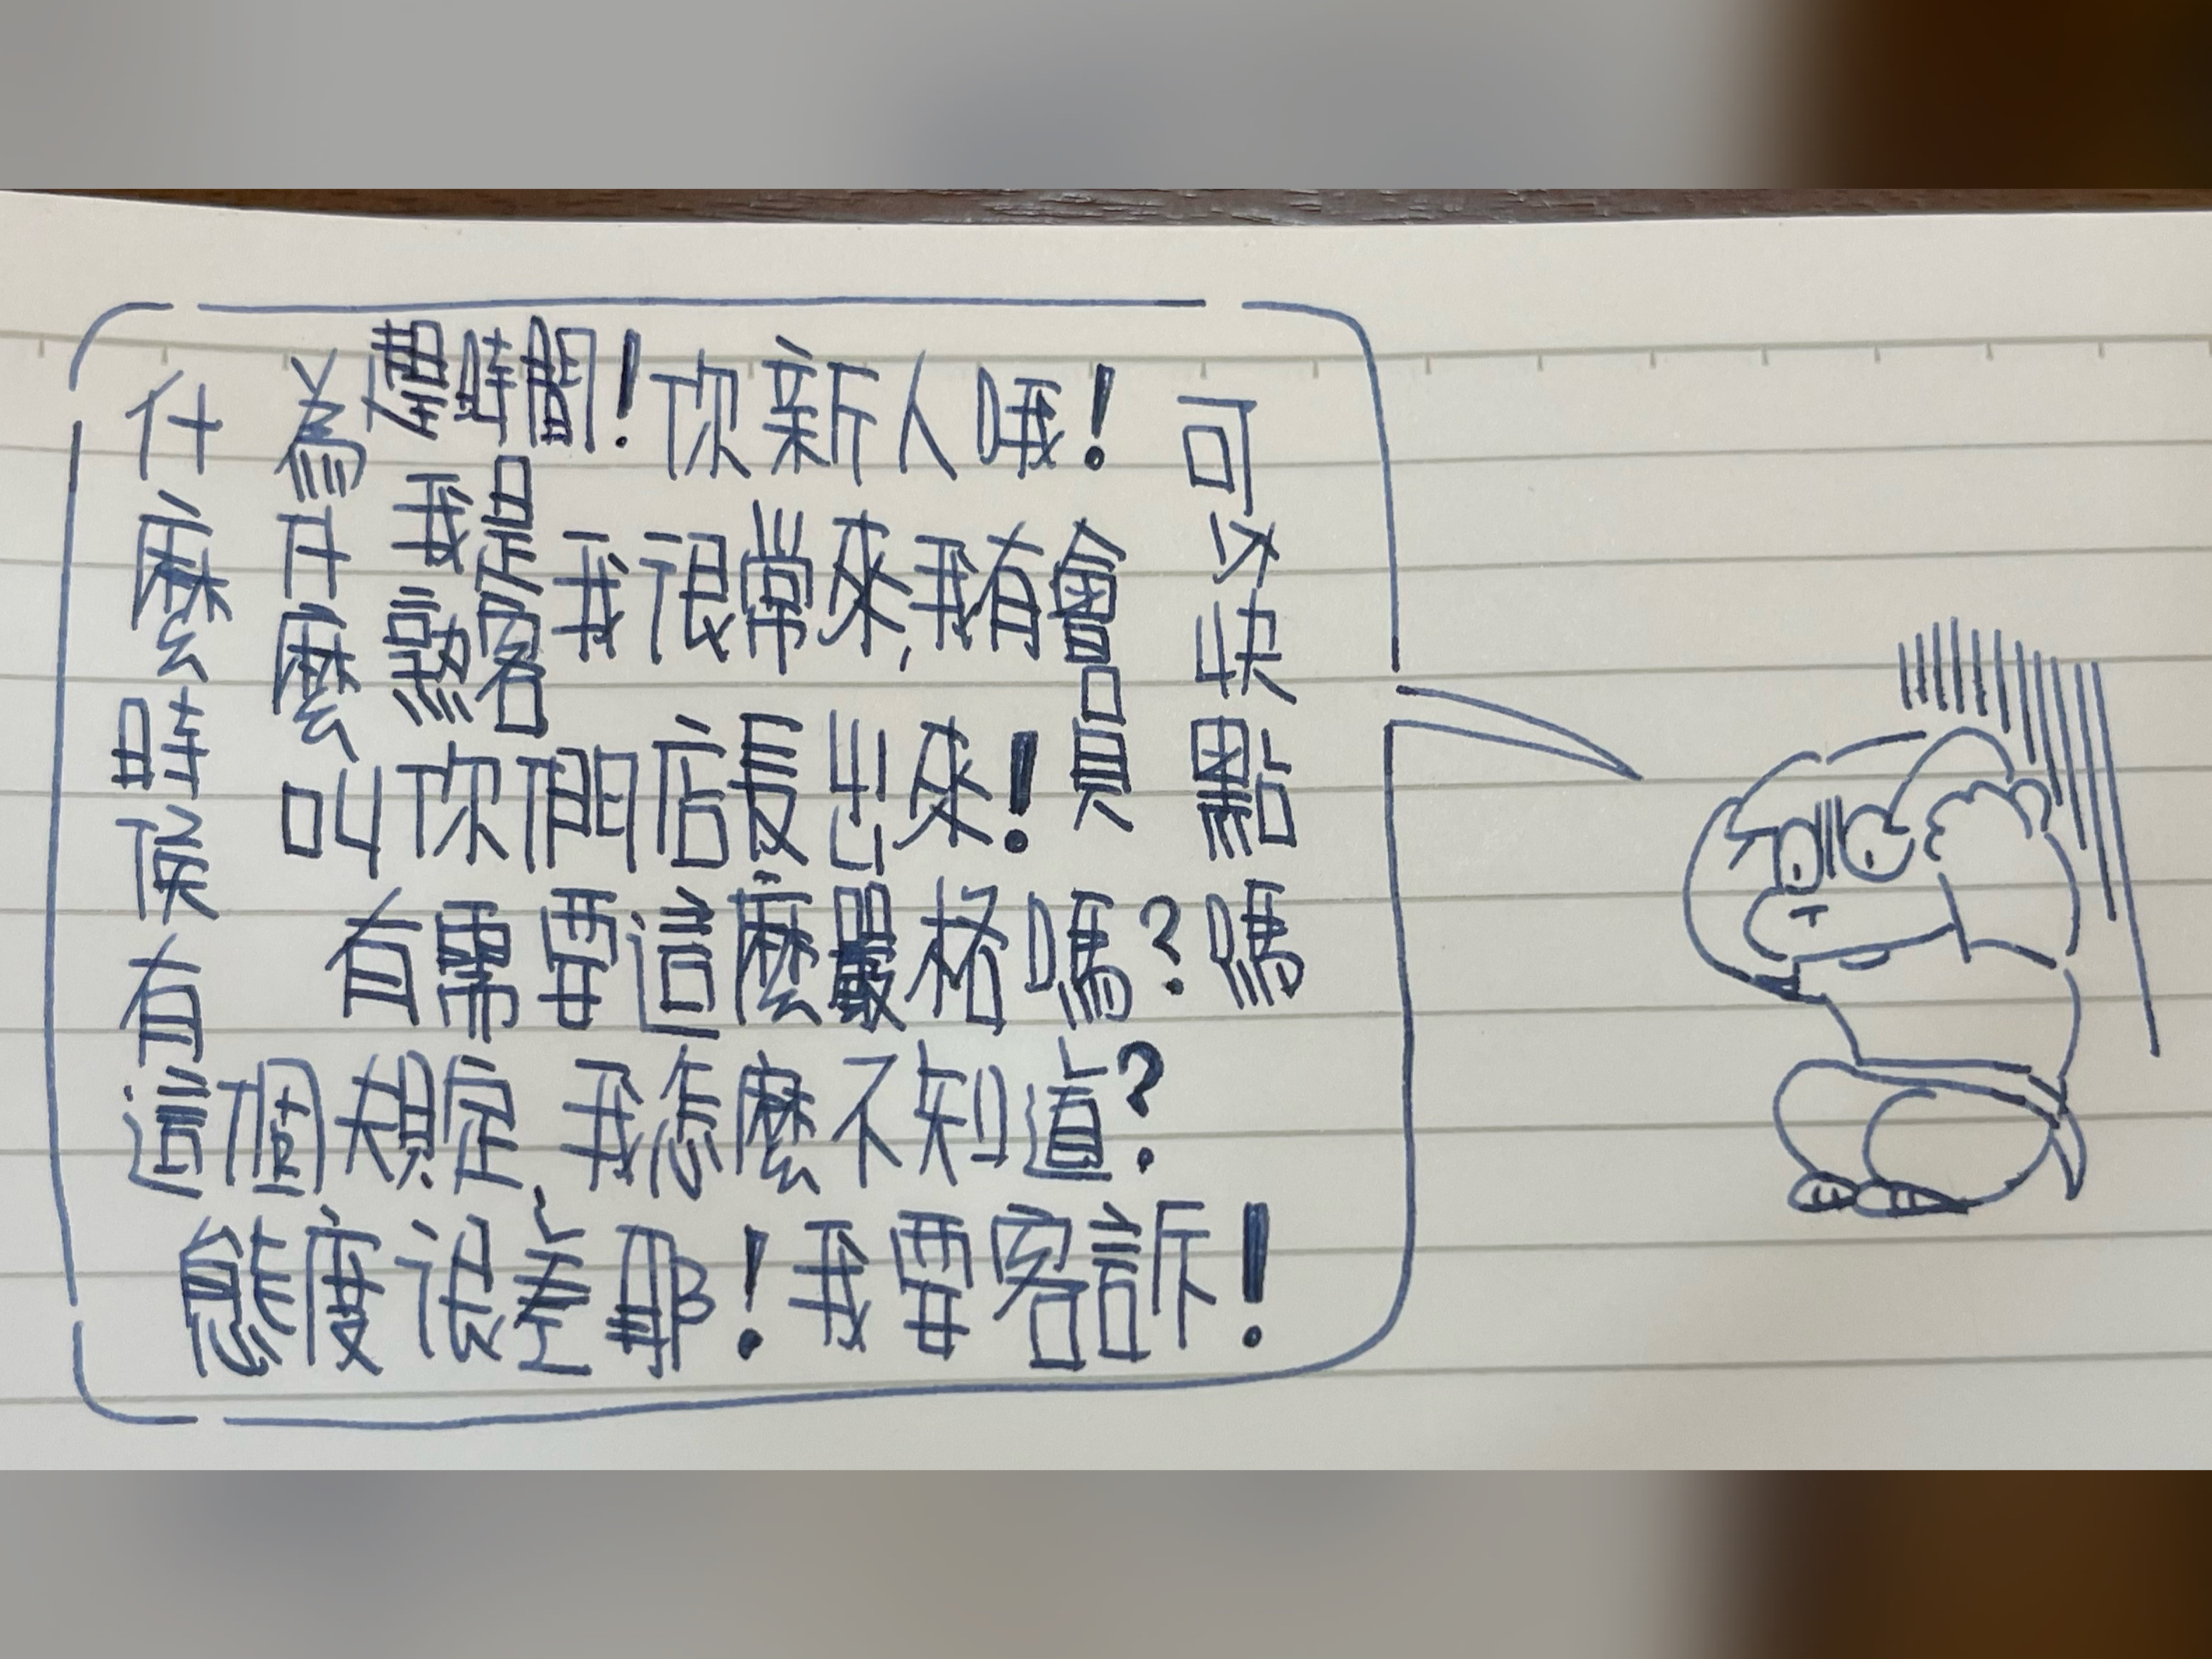 什麼時候有這個規定,我怎麼不知道?
為什麼
時間!
你新人哦!
我是熟客
我很常來,我有會員
叫你們店長出來!
有需要這麼嚴格嗎?
可以快點嗎
態度很差耶!我要客訴!